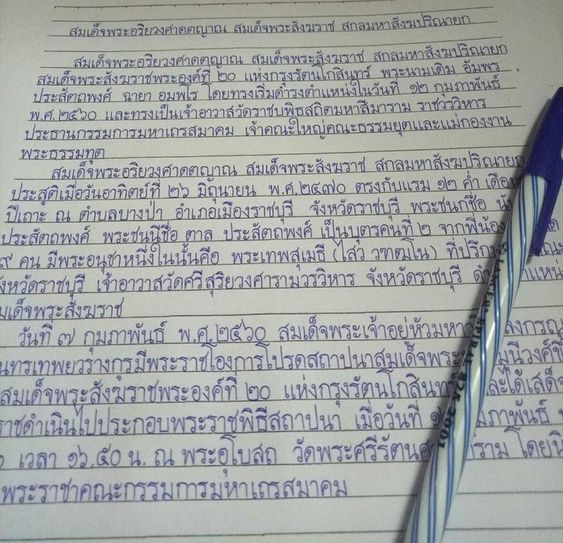 สมเด็จพระอริยวงศาคตญาณ สมเด็จพระสังฆราช สกลมหาสังฆปริณายก
สมเด็จพระอริยวงศาคตญาณ สมเด็จพระสังฆราช สกลมหาสังฆปริณายก
สมเด็จพระสังฆราชพระองค์ที่ ๒๐ แห่งกรุงรัตนโกสินทร์ พระนามเดิม อัมพร
ประสัตถพงศ์ ฉายา อมฺพโร โดยทรงเริ่มดำรงตำแหน่งในวันที่ ๑๒ กุมภาพันธ์
พ.ศ.๒๕๖๐ และทรงเป็นเจ้าอาวาสวัดราชบพิธสถิตมหาสีมาราม ราชวรวิหาร
ประธานกรรมการมหาเถรสมาคม เจ้าคณะใหญ่คณะธรรมยุตและแม่กองงาน
พระธรรมทูต
สมเด็จพระอริยวงศาคตญาณ สมเด็จพระสังฆราช สกลมหาสังฆปริณายก
ประสูติเมื่อวันอาทิตย์ที่ ๒๖ มิถุนายน พ.ศ.๒๔๗๐ ตรงกับแรม ๑๒ ค่ำ เดือน
ปีเถาะ ณ ตำบลบางป่า อำเภอเมืองราชบุรี จังหวัดราชบุรี พระชนกชื่อ นับ
ประสัตถพงศ์ พระชนนีชื่อ ตาล ประสัตถพงศ์ เป็นบุตรคนที่ ๒ จากพี่น้อง
๙ คน มีพระอนุชาหนึ่งในนั้นคือ พระเทพสุเมธี (ไสว วฑฺฒโน) ที่ปรึกษา
จังหวัดราชบุรี เจ้าอาวาสวัดศรีสุริยวงศารามวรวิหาร จังหวัดราชบุรี
สมเด็จพระสังฆราช
วันที่ ๗ กุมภาพันธ์ พ.ศ.๒๕๖๐ สมเด็จพระเจ้าอยู่หัวมหา
นทรเทพยวรางกูรมีพระราชโองการโปรดสถาปนาสมเด็จพระ มุนีวงศ์ขึ้น
สมเด็จพระสังฆราชพระองค์ที่ ๒๐ แห่งกรุงรัตนโกสินทร์ และได้เสด็จ
ราชดำเนินไปประกอบพระราชพิธีสถาปนา เมื่อวันที่ กุมภาพันธ์
เวลา ๑๖.๕๐ น. ณ พระอุโบสถ วัดพระศรีรัตน โดย
พระราชาคณะกรรมการมหาเถรสมาคม